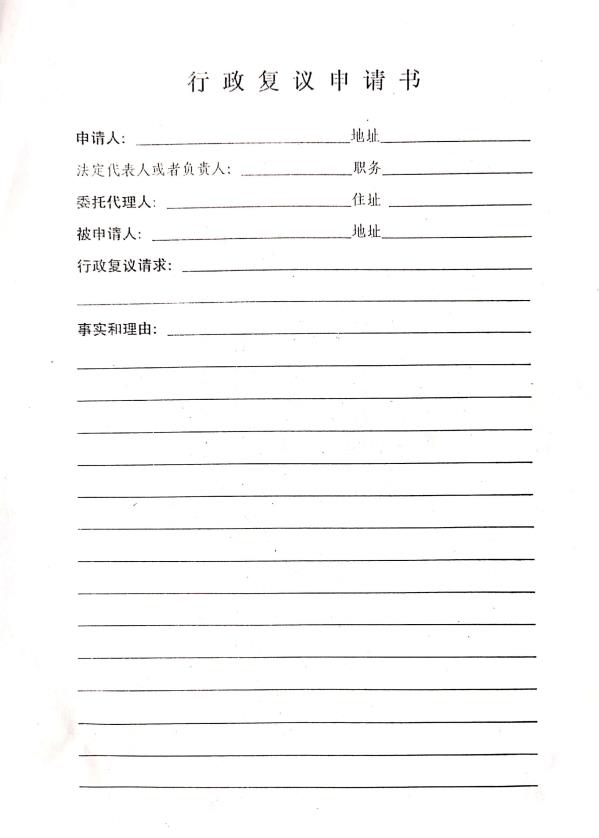 行政复议申请书
申请人：地址
法定代表人或者负责人：职务
委托代理人：住址
被申请人：地址
行政复议请求：
事实和理由：